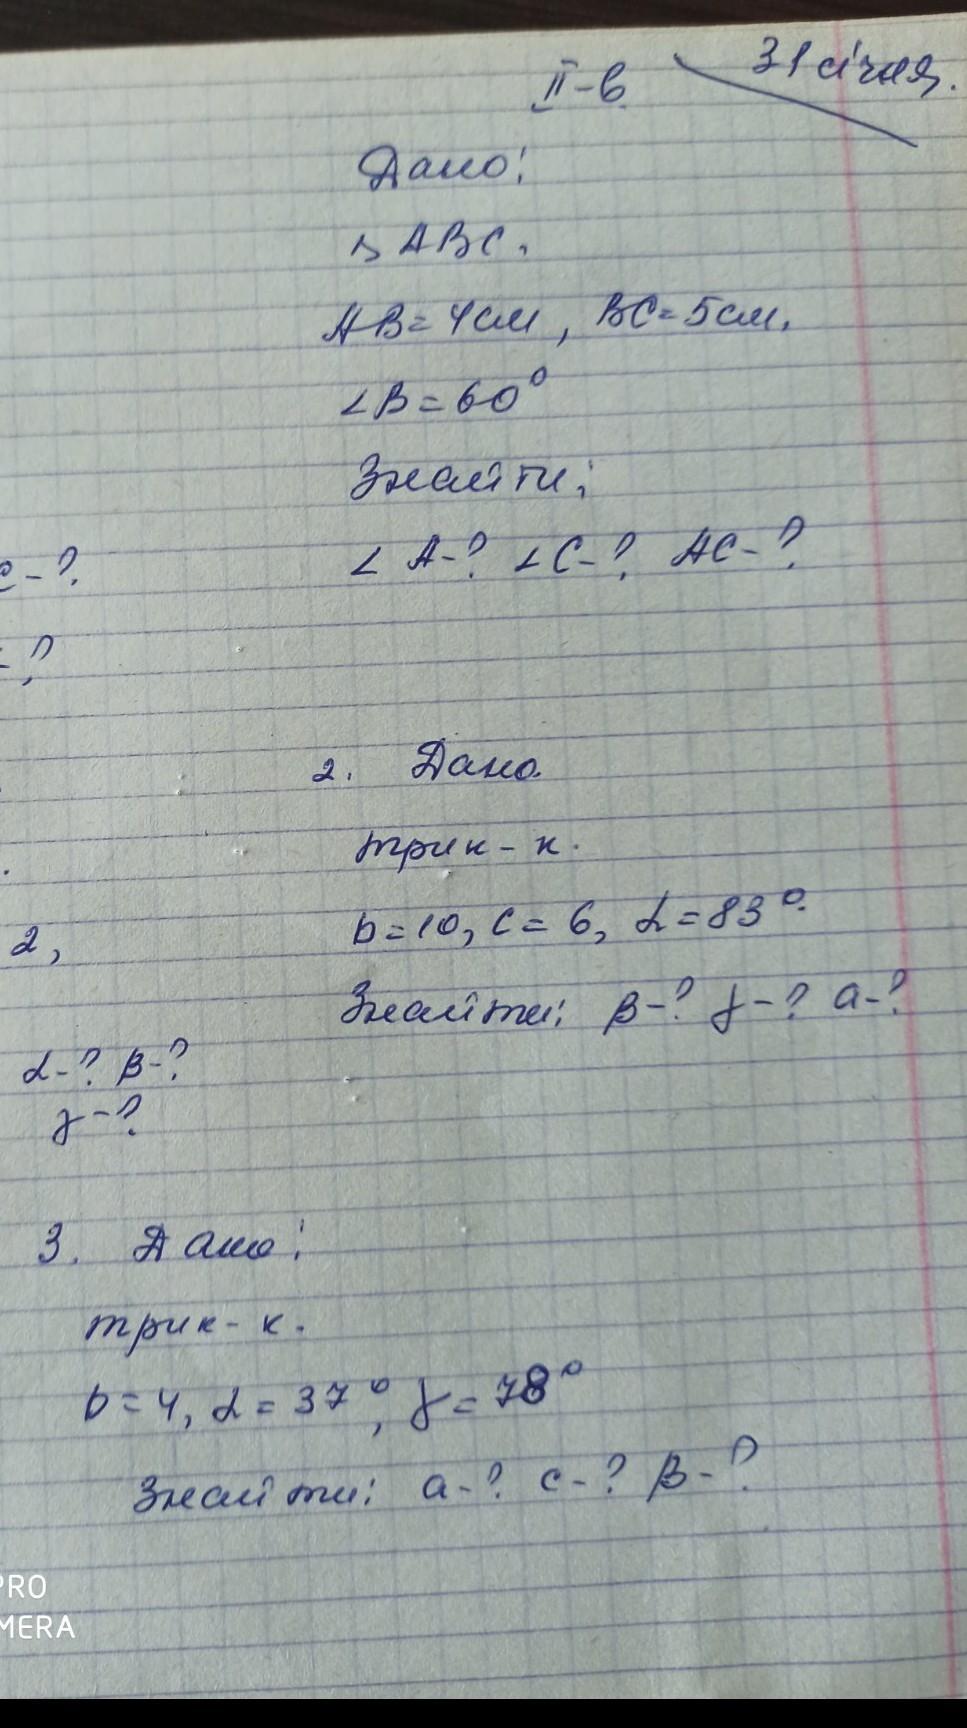 II-в 31 січня.
Дано:
△ ABC.
AB = 4см, BC = 5см.
∠B = 60°
Знайти:
∠ A-? ∠C-? AC-?
с-?
-?
2. Дано.
трик-к.
b=10, c= 6, α=83°.
2,
Знайти: β-? γ-? a-?
α-? β-?
γ-?
3. Дано:
трик-к.
b=4, α=37°, γ=78°
Знайти: a-? c-? β-?
PRO
MERA